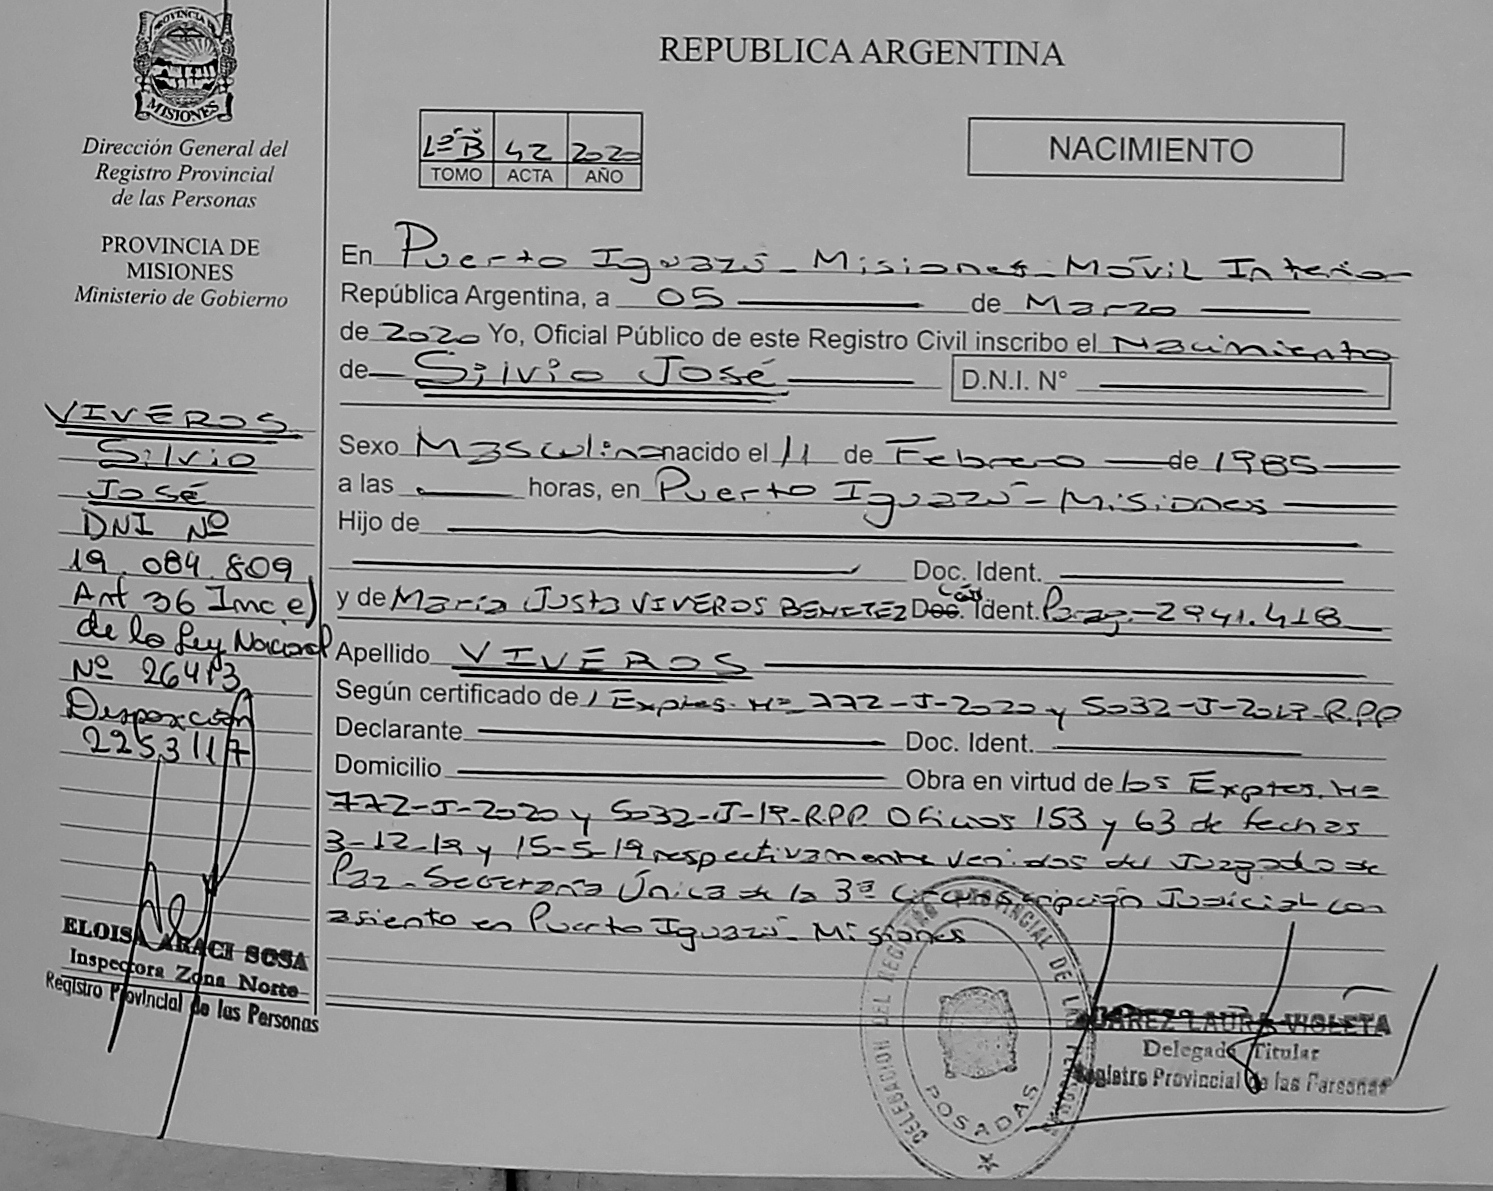 PROVINCIA DE
MISIONES
Dirección General del
Registro Provincial
de las Personas
PROVINCIA DE
MISIONES
Ministerio de Gobierno
VIVEROS
Silvio
José
DNI Nº
19.084.809
Art 36 Inc e)
de la Ley Nacional
Nº 26413
Disposición
2253117
ELOISA ARACI SOSA
Inspectora Zona Norte
Registro Provincial de las Personas
REPUBLICA ARGENTINA
LºB 42 2020
TOMO ACTA AÑO
NACIMIENTO
En Puerto Iguazú - Misiones - Móvil Interior
República Argentina, a 05 de Marzo
de 2020 Yo, Oficial Público de este Registro Civil inscribo el Nacimiento
de Silvio José D.N.I. N°
Sexo Masculino nacido el 11 de Febrero de 1985
a las horas, en Puerto Iguazú - Misiones
Hijo de
Doc. Ident.
y de María Justa VIVEROS BENITEZ Doc. Ced Ident. Parag. - 2941.418
Apellido VIVEROS
Según certificado de Exptes. Nº 772-J-2020 y 5032-J-2019-R.P.P
Declarante Doc. Ident.
Domicilio Obra en virtud de los Exptes. Nº
772-J-2020 y 5032-J-19-R.P.P. Oficios 153 y 63 de fechas
3-12-19 y 15-5-19 respectivamente venidos del Juzgado de
Paz - Secretaría Única de la 3ª Circunscripción Judicial con
asiento en Puerto Iguazú - Misiones
DELEGACION DEL REGISTRO PROVINCIAL DE LAS PERSONAS
POSADAS
JUAREZ LAURA VIOLETA
Delegada Titular
Registro Provincial de las Personas